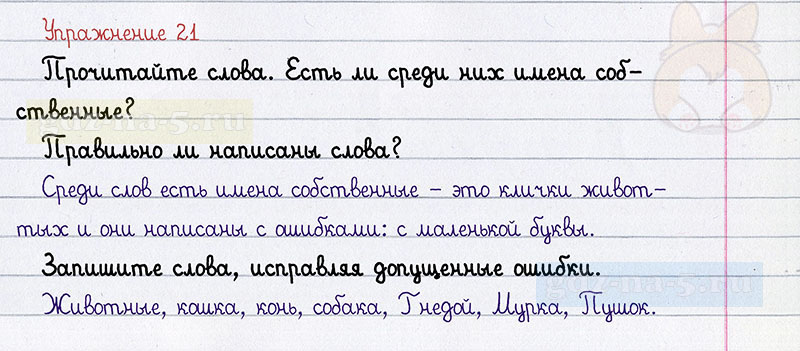 Упражнение 21
Прочитайте слова. Есть ли среди них имена соб-
ственные?
gdz-na-5.ru
Правильно ли написаны слова?
Среди слов есть имена собственные – это клички живот-
тых и они написаны с ошибками: с маленькой буквы.
Запишите слова, исправляя допущенные ошибки.
gdz-na-5.ru
Животные, кошка, конь, собака, Гнедой, Мурка, Пушок.